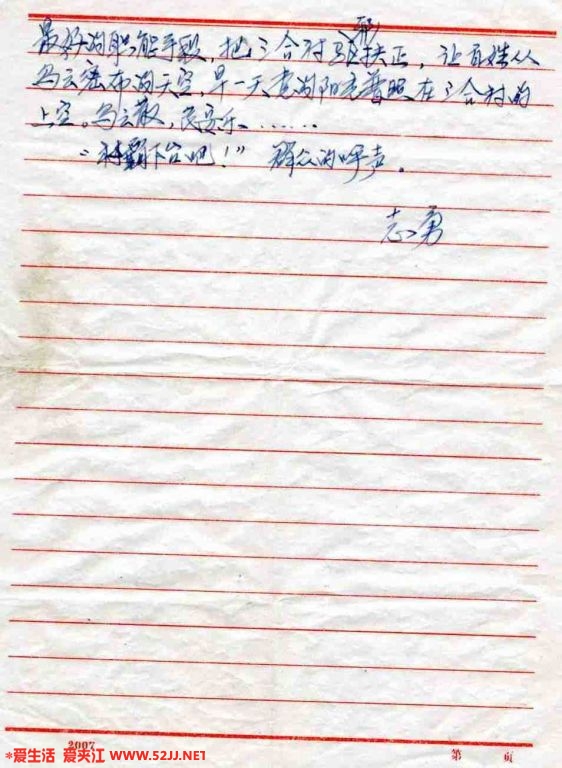 最好的职能手段，把三合村驱邪扶正，让百姓从
乌云密布的天空，早一天党的阳光普照在三合村的
上空。乌云散，民安乐……
“村霸下台吧！” 群众的呼声。
志勇
2007
第 页
*爱生活 爱夹江 WWW.52JJ.NET